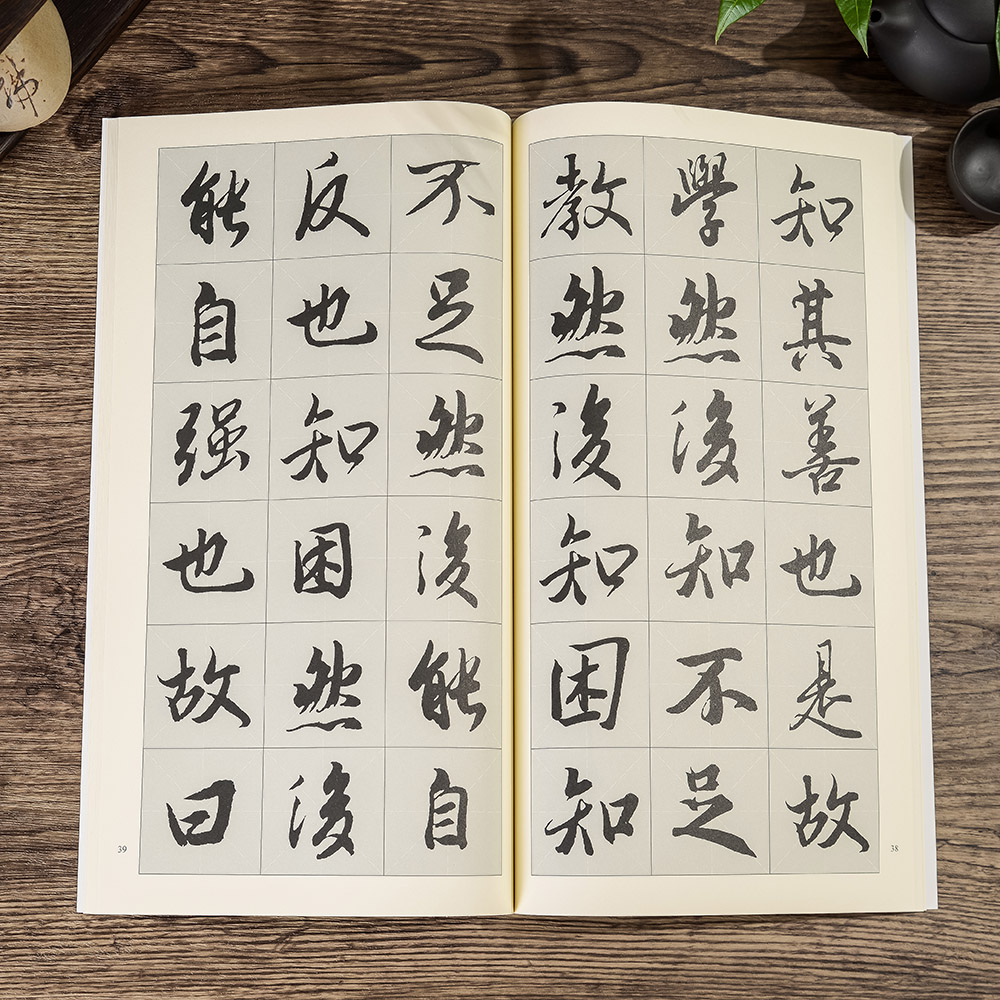 知其善也是故
學然後知不足
教然後知困知
38
不足然後能自
反也知困然後
能自强也故曰
39